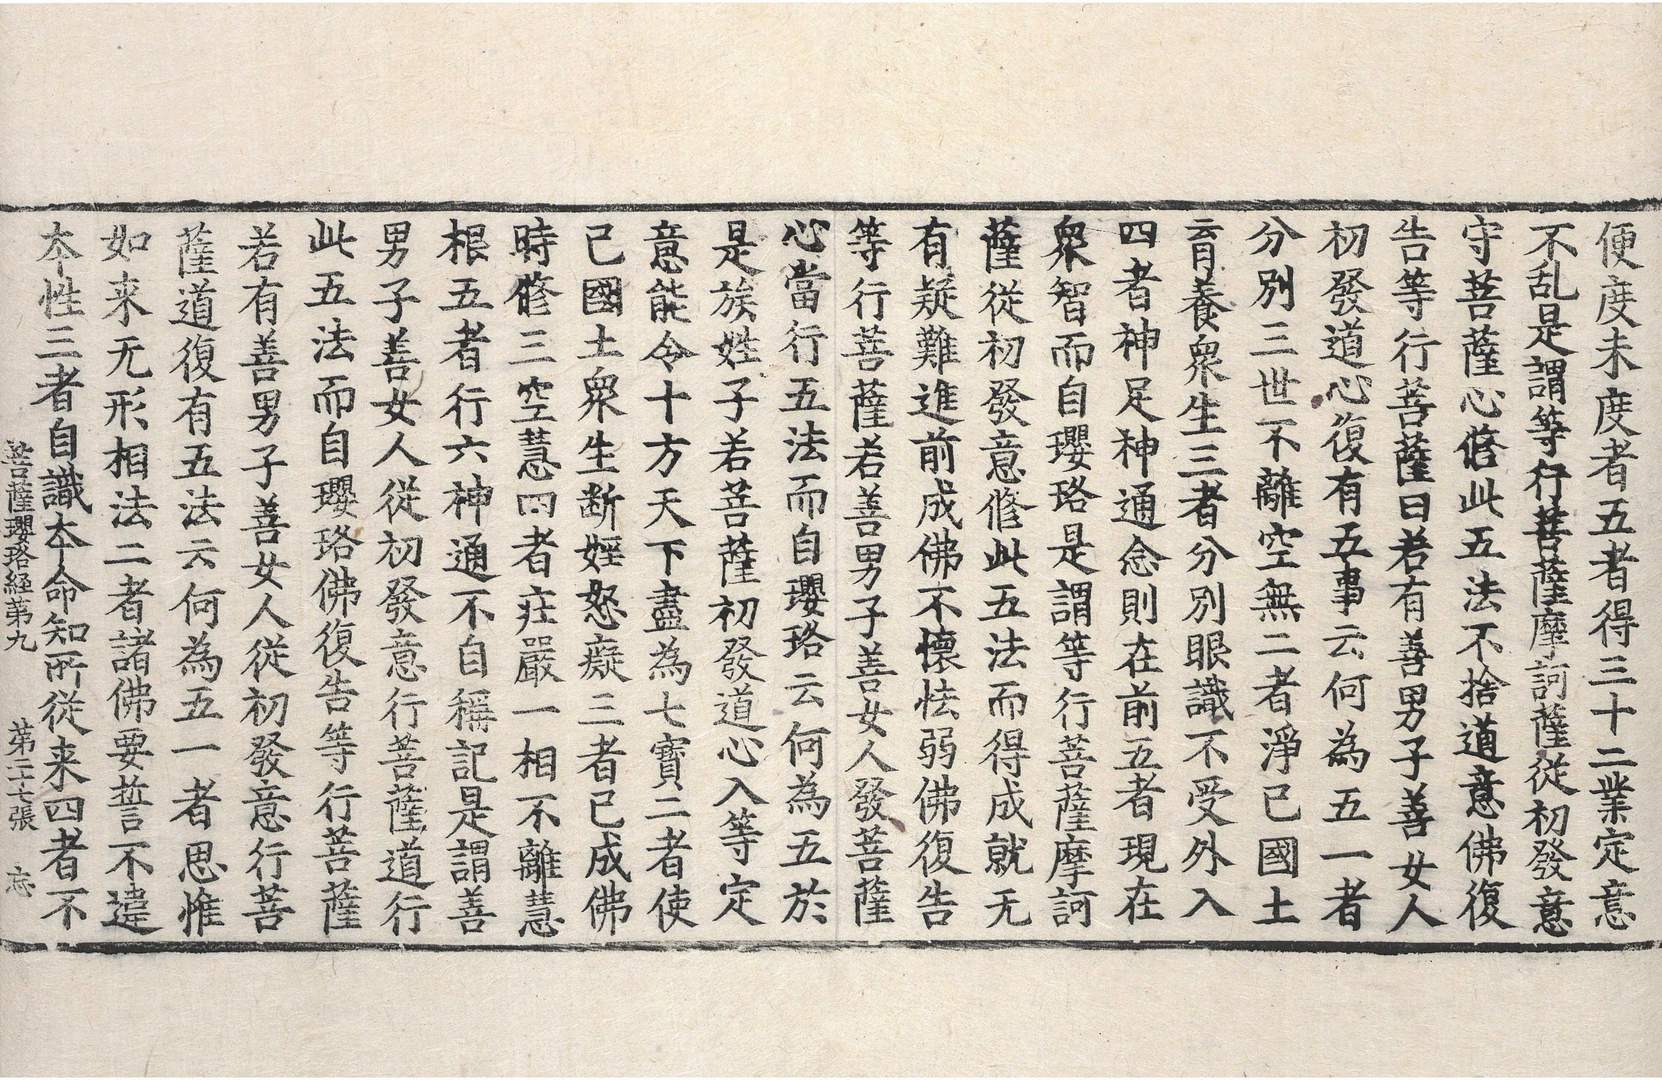 便度未度者五者得三十二業定意
不乱是謂等行菩薩摩訶薩從初發意
守菩薩心俻此五法不捨道意佛復
告等行菩薩曰若有善男子善女人
初發道心復有五事云何為五一者
分別三世不離空無二者淨已國土
育養衆生三者分別眼識不受外入
四者神足神通念則在前五者現在
衆智而自瓔珞是謂等行菩薩摩訶
薩從初發意俻此五法而得成就无
有疑難進前成佛不懷怯弱佛復告
等行菩薩若善男子善女人發菩薩
心當行五法而自瓔珞云何為五於
是族姓子若菩薩初發道心入等定
意能令十方天下盡為七寶二者使
已國土衆生断婬怒癡三者已成佛
時俻三空慧四者庄嚴一相不離慧
根五者行六神通不自稱記是謂善
男子善女人從初發意行菩薩道行
此五法而自瓔珞佛復告等行菩薩
若有善男子善女人從初發意行菩
薩道復有五法云何為五一者思惟
如来无形相法二者諸佛要誓不違
夲性三者自識夲命知所從来四者不
菩薩瓔珞經苐九 苐二十七張 忘